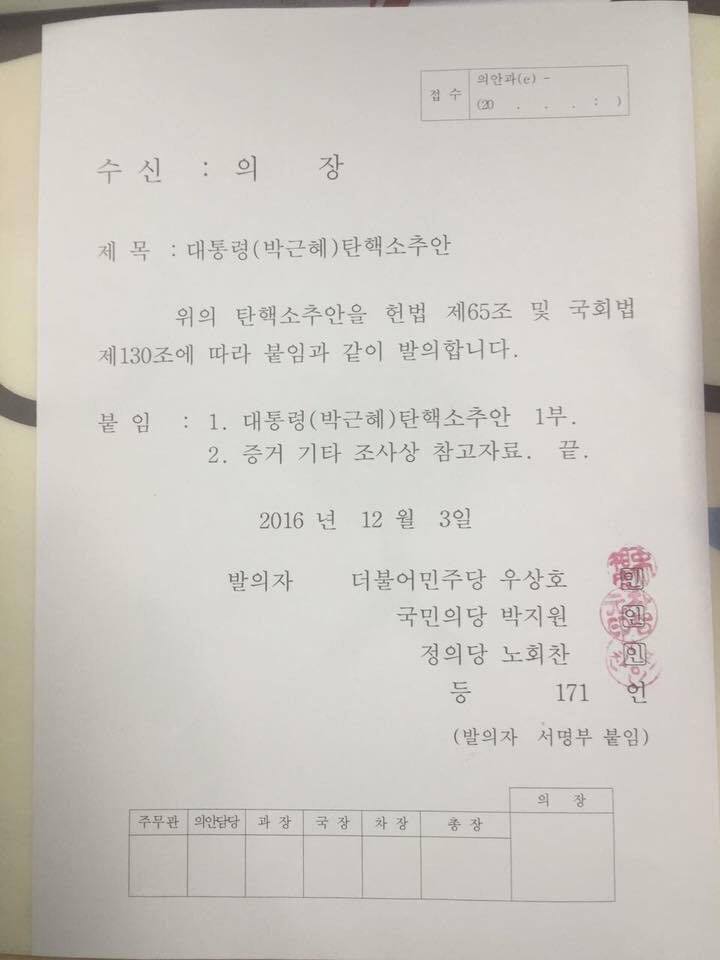 접 수
의안과(e) -
(20 . . . : )
수 신 : 의 장
제 목 : 대통령(박근혜)탄핵소추안
위의 탄핵소추안을 헌법 제65조 및 국회법
제130조에 따라 붙임과 같이 발의합니다.
붙 임 : 1. 대통령(박근혜)탄핵소추안 1부.
2. 증거 기타 조사상 참고자료. 끝.
2016 년 12 월 3일
발의자 더불어민주당 우상호 인
국민의당 박지원 인
정의당 노회찬 인
등 171 인
(발의자 서명부 붙임)
주무관 의안담당 과 장 국 장 차 장 총 장 의 장